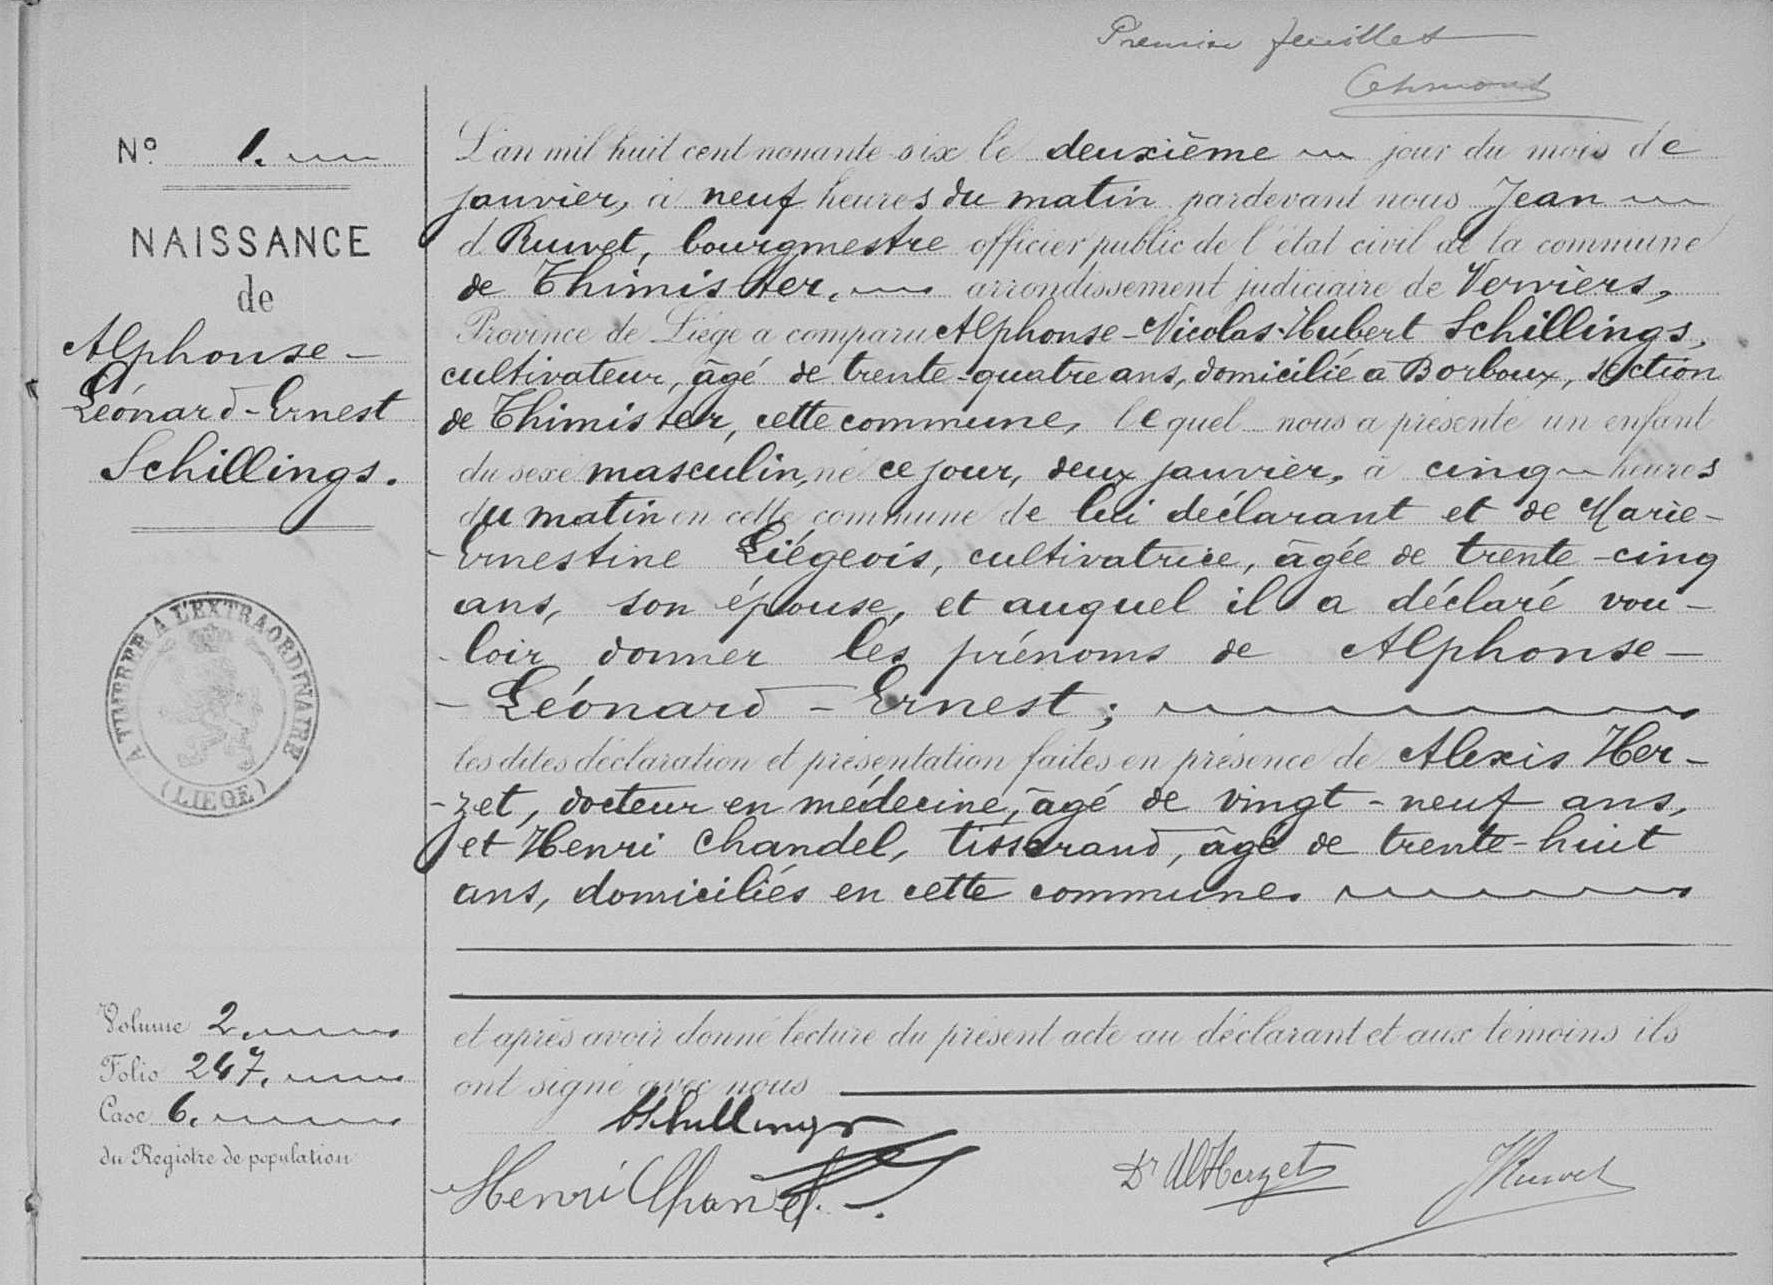 Premier feuillet
Nº 1.
NAISSANCE
de
Alphonse-
Léonard-Ernest
Schillings.
A TIMBRER A L'EXTRAORDINAIRE
(LIÉGE)
Volume 2.
Folio 247.
Case 6.
du Registre de population
L'an mil huit cent nonante-six le deuxième jour du mois de
janvier, à neuf heures du matin pardevant nous Jean
Ruwet, bourgmestre officier public de l'état civil de la commune
de Thimister, arrondissement judiciaire de Verviers,
Province de Liége a comparu Alphonse-Nicolas-Hubert Schillings,
cultivateur, âgé de trente-quatre ans, domicilié a Borboux, section
de Thimister, cette commune, lequel nous a présenté un enfant
du sexe masculin, né ce jour, deux janvier, à cinq heures
du matin en cette commune de lui déclarant et de Marie-
-Ernestine Liégeois, cultivatrice, âgée de trente-cinq
ans, son épouse, et auquel il a déclaré vou-
-loir donner les prénoms de Alphonse-
-Léonard-Ernest;
les dites déclaration et présentation faites en présence de Alexis Her-
-zet, docteur en médecine, âgé de vingt-neuf ans,
et Henri Chandel, tisserand, âgé de trente-huit
ans, domiciliés en cette commune.
et après avoir donné lecture du présent acte au déclarant et aux témoins ils
ont signé avec nous
Schillings
Henri Chandel. Dr Al Herzet JRuwet